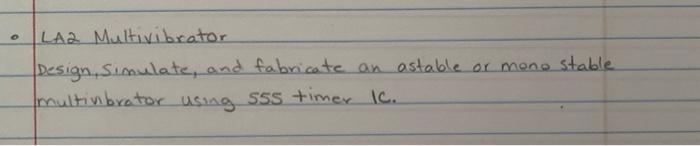 • LA2 Multivibrator
Design, Simulate, and fabricate an astable or mono stable
multivibrator using 555 timer IC.